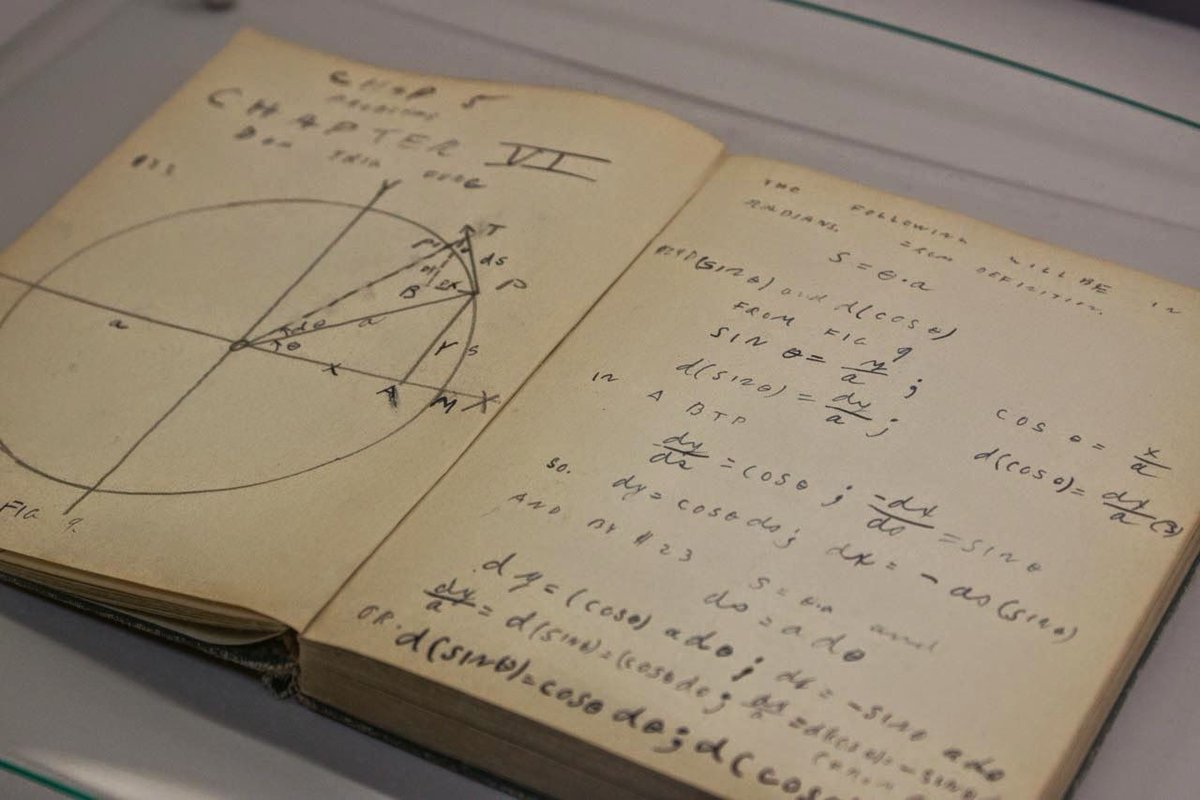 CHAP 5
CHAPTER VI
Y
T
ds
P
B
dθ
a
a
θ
Y
S
X
A
M
X
FIG 9.
THE FOLLOWING WILL BE IN
RADIANS. FROM DEFINITION.
S = θ·a
d(sinθ) and d(cosθ)
FROM FIG 9
SIN θ = y/a ; COS θ = x/a
d(sinθ) = dy/a ; d(cosθ) = dx/a (3)
IN Δ BTP
dy/ds = cosθ ; -dx/ds = sinθ
SO. dy = cosθ ds ; dx = -ds(sinθ)
AND BY #23 S = θ·a and
ds = a dθ
dy = (cosθ) a dθ ; dx = -sinθ a dθ
dy/a = d(sinθ) = (cosθ dθ ; dx/a = d(cosθ) = -sinθ
OR. d(sinθ) = cosθ dθ ; d(cos